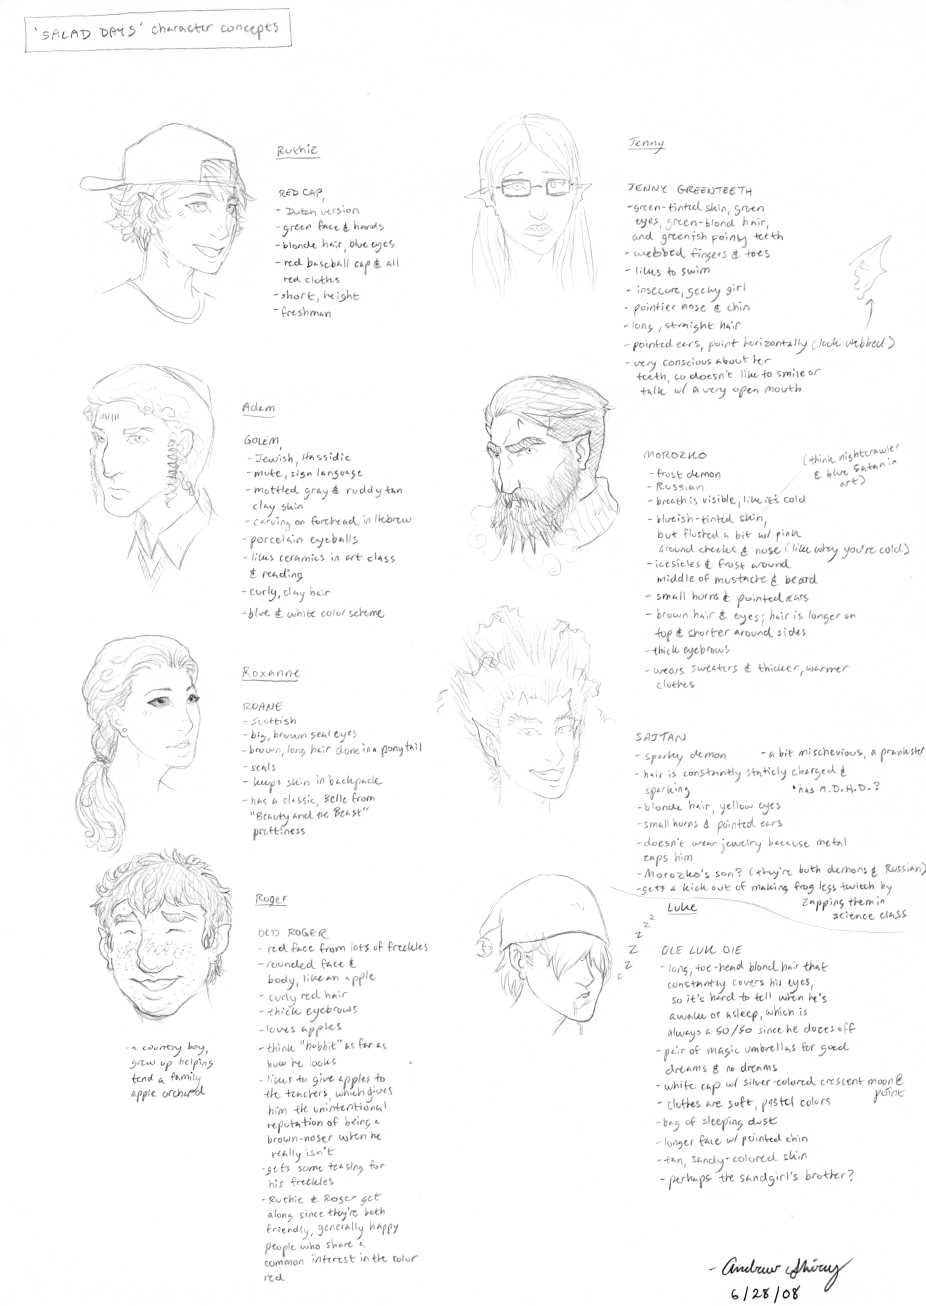 "SALAD DAYS" character concepts
Ruthie
RED CAP,
- Dutch version
- green face & hands
- blonde hair, blue eyes
- red baseball cap & all
red clothes
- short, height
- freshman
Jenny
JENNY GREENTEETH
- green-tinted skin, green
eyes, green-blond hair,
and greenish pointy teeth
- webbed fingers & toes
- likes to swim
- insecure, geeky girl
- pointier nose & chin
- long, straight hair
- pointed ears, point horizontally (look webbed)
- very conscious about her
teeth, so doesn't like to smile or
talk w/ a very open mouth
Adam
GOLEM,
- Jewish, Hassidic
- mute, sign language
- mottled gray & ruddy tan
clay skin
- carving on forehead in Hebrew
- porcelain eyeballs
- likes ceramics in art class
& reading
- curly, clay hair
- blue & white color scheme
MOROZKO
- frost demon
- Russian
- breath is visible, like it's cold
- blueish-tinted skin,
but flushed a bit w/ pink
around cheeks & nose (like when you're cold)
(think nightcrawler
& blue Satan in
art)
- icesicles & frost around
middle of mustache & beard
- small horns & pointed ears
- brown hair & eyes; hair is longer on
top & shorter around sides
- thick eyebrows
- wears sweaters & thicker, warmer
clothes
Roxanne
ROANE
- Scottish
- big, brown seal eyes
- brown, long hair done in a ponytail
- seals
- keeps skin in backpack
- has a classic, Belle from
"Beauty and the Beast"
prettiness
SAJTAN
- sparky demon
- a bit mischevious, a prankster
- hair is constantly staticly charged &
sparking
* has A.D.H.D.?
- blonde hair, yellow eyes
- small horns & pointed ears
- doesn't wear jewelry because metal
zaps him
- Morozko's son? (they're both demons & Russian)
- gets a kick out of making frog legs twitch by
zapping them in
science class
Roger
OLD ROGER
- red face from lots of freckles
- rounded face &
body, like an apple
- curly red hair
- thick eyebrows
- loves apples
- think "hobbit" as far as
how he looks
- likes to give apples to
the teachers, which gives
him the unintentional
reputation of being a
brown-noser when he
really isn't
- gets some teasing for
his freckles
- Ruthie & Roger get
along since they're both
friendly, generally happy
people who share a
common interest in the color
red
- a country boy,
grew up helping
tend a family
apple orchard
Luke
z z z z z z
OLE LUK OIE
- long, toe-head blond hair that
constantly covers his eyes,
so it's hard to tell when he's
awake or asleep, which is
always a 50/50 since he dozes off
- pair of magic umbrellas for good
dreams & no dreams
- white cap w/ silver-colored crescent moon @
point
- clothes are soft, pastel colors
- bag of sleeping dust
- longer face w/ pointed chin
- tan, sandy-colored skin
- perhaps the sandgirl's brother?
- Andrew Shirey
6/28/08